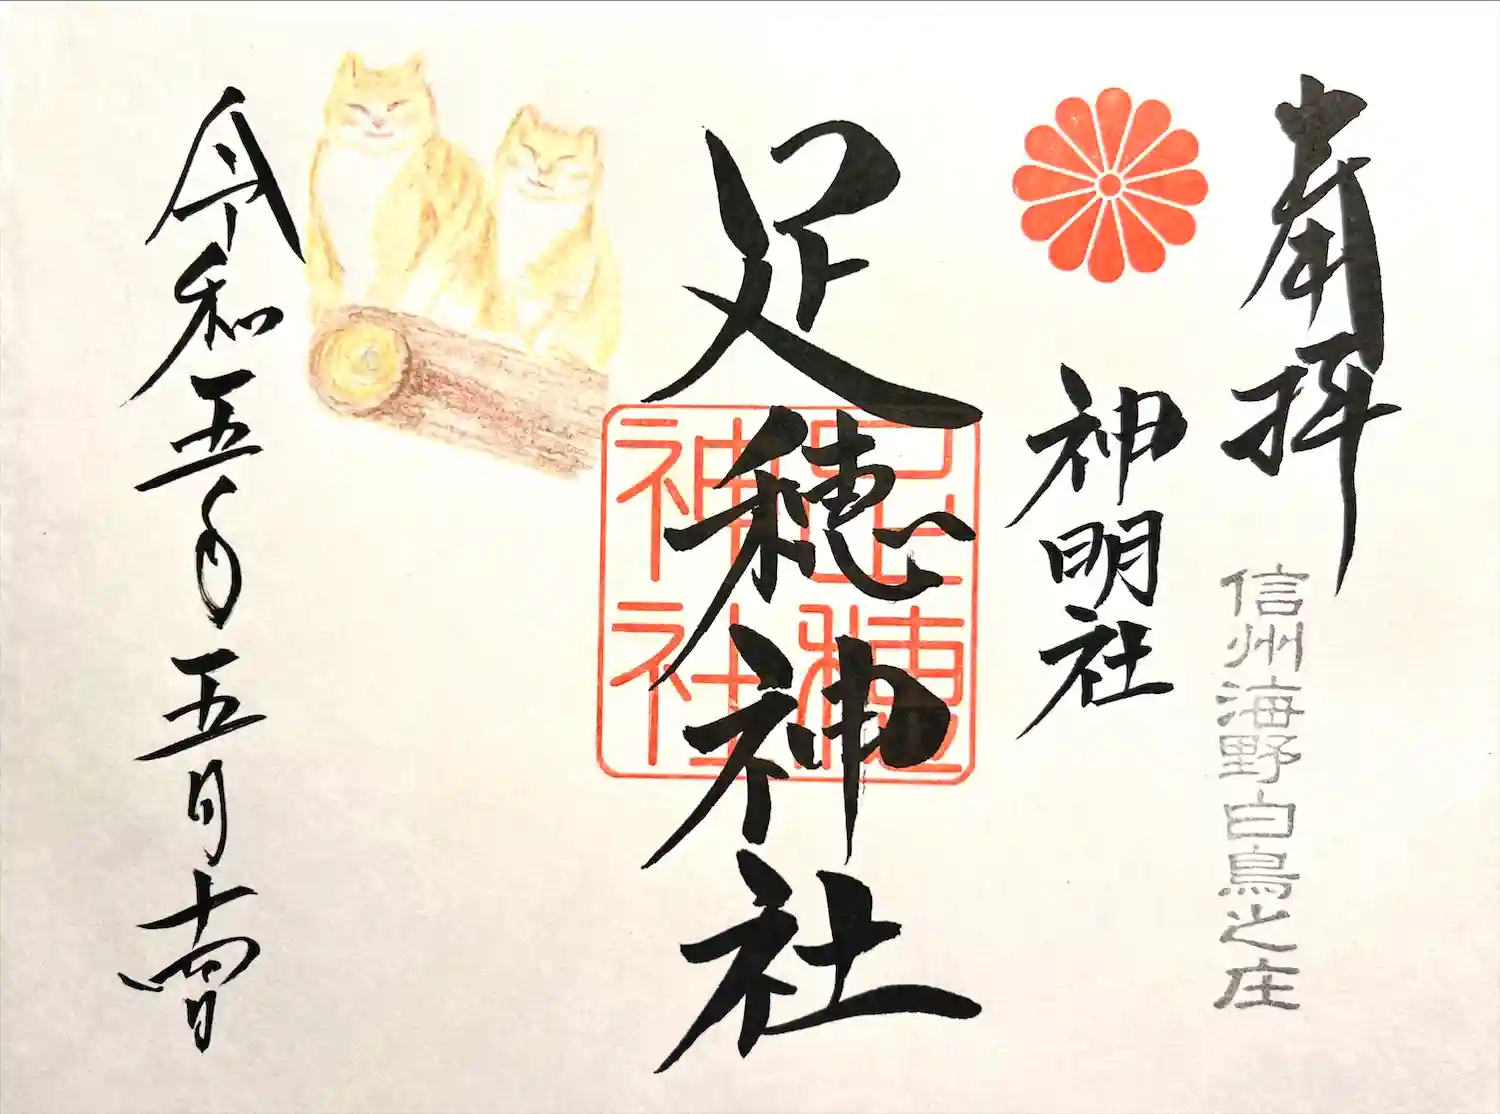 奉拝
信州海野白鳥之庄
神明社
足穂神社
足穂
神社
令和五年五月十四日